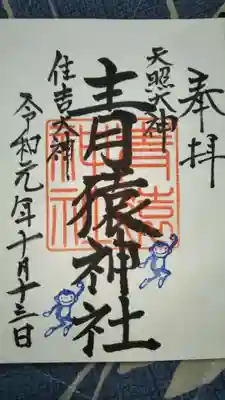 奉拝
天照大神
青猿神社
住吉大神
令和元年十月十三日
青猿
神社